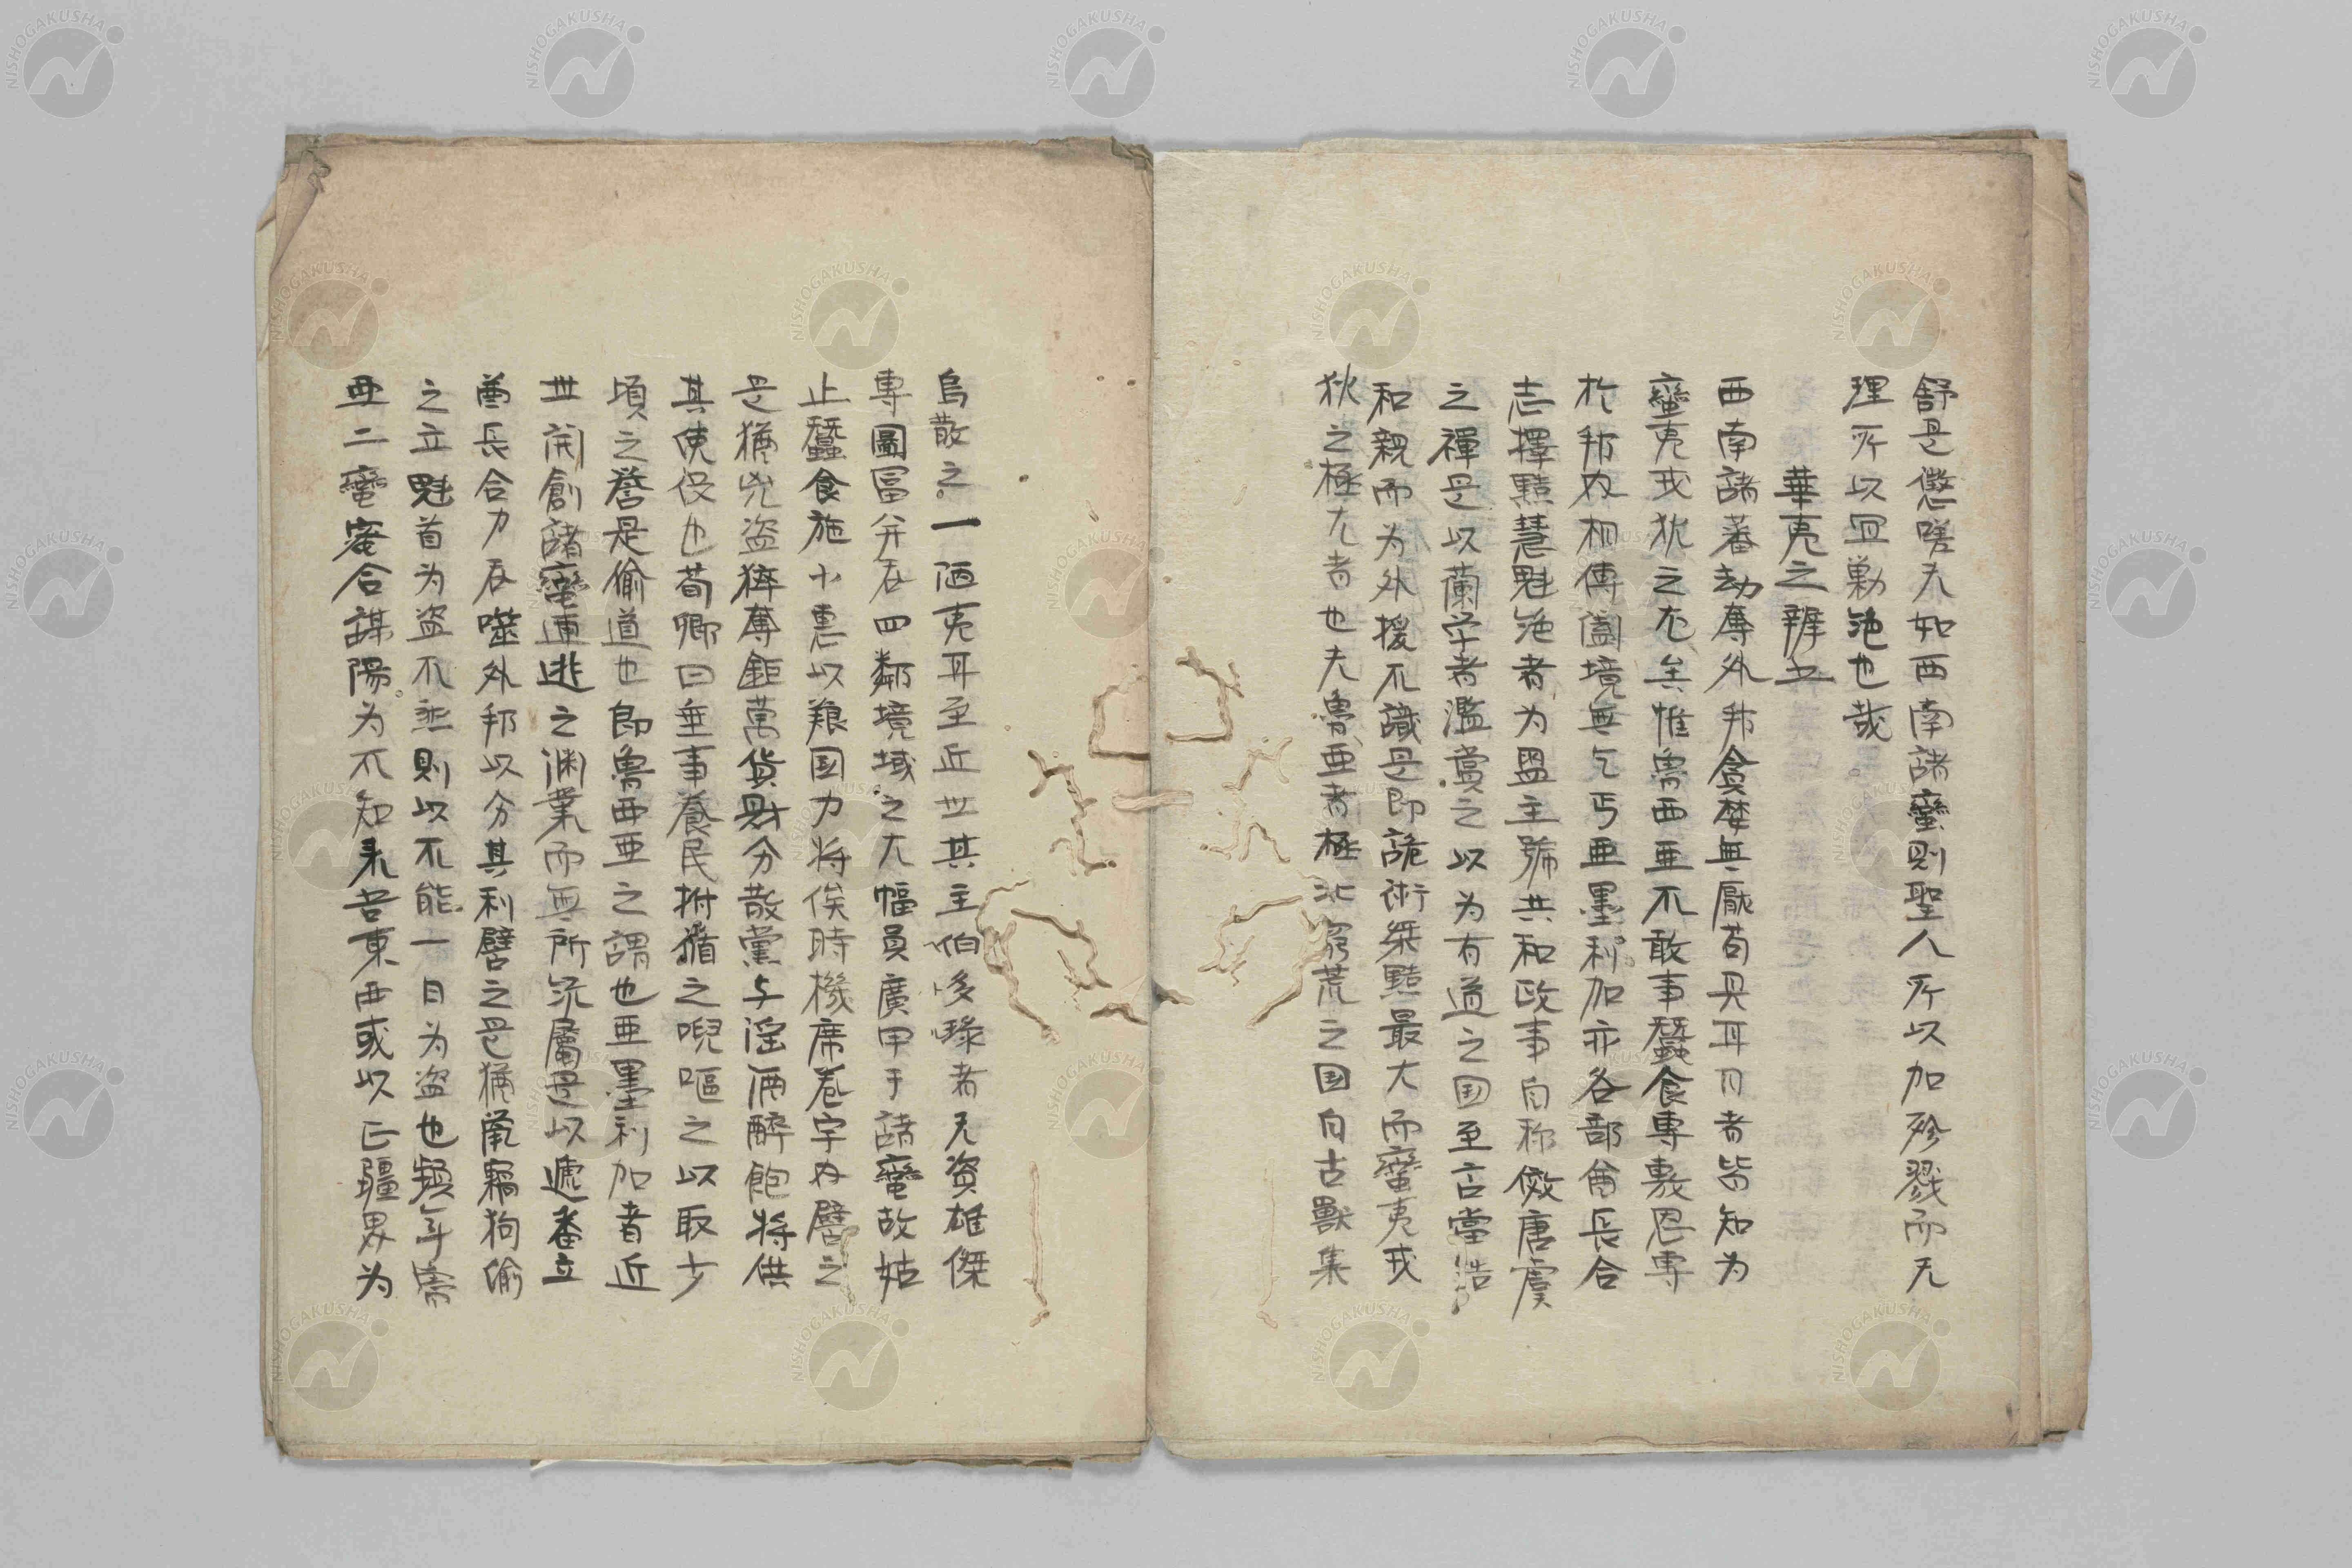 舒是懲嗟夫如西南諸蠻則聖人所以加殄戮而无
理所以宜勦絶也哉
華夷之辨五
西南諸蕃劫奪外邦貪婪無厭苟具耳目者皆知為
蠻夷戎狄之尤矣惟魯西亜不敢事蠶食専敷恩専
於邦內相傳闔境無乞丐亜墨利加亦各部酋長合
志擇黠慧魁絶者為盟主號共和政事自称傚唐虞
之禪是以蘭学者濫賞之以為有道之国至言當
和親而為外援不識是即詭術桀黠最大而蠻夷戎
狄之極尤者也夫魯亜者極北窮荒之国自古獸集
烏散之一陋夷耳至近世其主伯多琭者天資雄傑
専圖冨并吞四鄰境域之大幅員廣甲于諸蠻故姑
止蠶食施小惠以粮国力将俟時機席卷宇內譬之
是猶兇盗猝奪鉅萬貨財分散黨与淫酒醉飽将供
其使役也荀卿曰垂事養民拊循之唲嘔之以取少
頃之誉是偷道也即魯西亜之謂也亜墨利加者近
世開創諸蠻逋逃之渊業而無所統屬是以遞番立
酋長合力吞噬外邦以分其利譬之是猶鼠竊狗偷
之立魁首为盗不然則以不能一日为盗也頻年魯
亜二蠻蜜合謀陽为不知来吾東西或以正疆界为